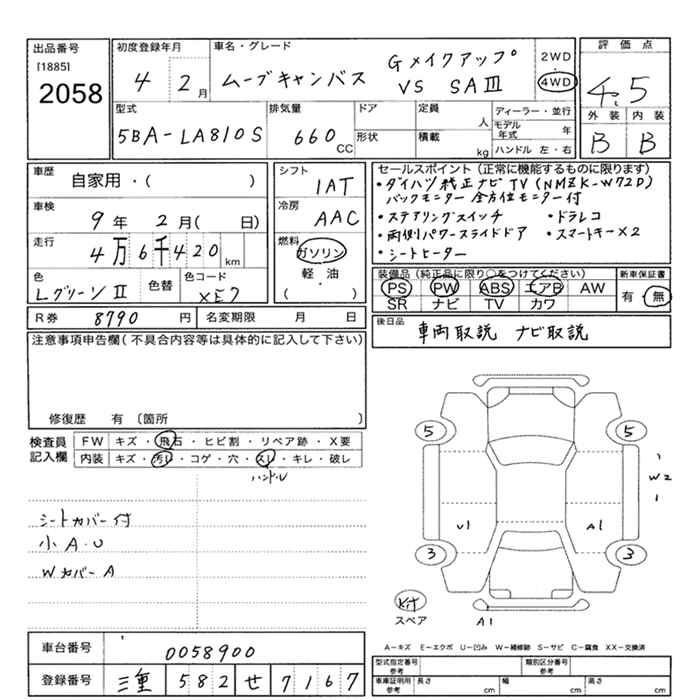 出品番号
[1885]
2058
初度登録年月
4 2月
車名・グレード
ムーブキャンバス Gメイクアップ VS SAⅢ
2WD
4WD
評価点
4.5
外装 内装
B B
型式
5BA-LA810S
排気量
660 CC
ドア
形状
定員 人
積載 kg
ディーラー・並行
モデル年式 年
ハンドル 左・右
車歴
自家用・( )
車検
9年 2月( 日)
走行
4万6千420km
色
Lグリーン Ⅱ
色替
色コード
XE7
シフト
1AT
冷房
AAC
燃料
ガソリン
軽・油
( )
セールスポイント(正常に機能するものに限ります)
・ダイハツ純正ナビTV(NMZK-W72D)
バックモニター 全方位モニター付
・ステアリングスイッチ ・ドラレコ
・両側パワースライドドア ・スマートキー×2
・シートヒーター
装備品(純正品に限り○をつけてください)
PS PW ABS エアB AW
SR ナビ TV カワ
新車保証書
有・無
R券 8790 円
名変期限 月 日
後日品
車両取説 ナビ取説
注意事項申告欄(不具合内容等は具体的に記入して下さい)
修復歴 有〔箇所 〕
検査員記入欄
FW キズ・飛石・ヒビ割・リペア跡・X要
内装 キズ・汚レ・コゲ・穴・スレ・キレ・破レ
ハンドル
シートカバー付
小A・U
WカバーA
5 5
W2
U1 A1
3 3
Kit
スペア
A1
A-キズ E-エクボ U-凹み W-補修跡 S-サビ C-腐食 XX-交換済
車台番号
0058900
登録番号
三重 582 せ 7167
型式指定番号 参考
類別区分番号 参考
車庫証明用 参考
長さ cm
幅 cm
高さ cm